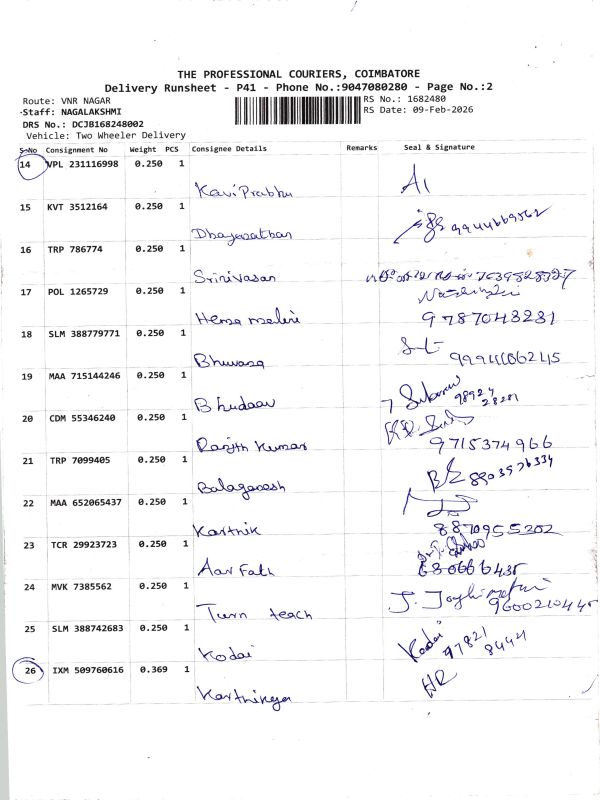 THE PROFESSIONAL COURIERS, COIMBATORE
Delivery Runsheet - P41 - Phone No.:9047080280 - Page No.:2
Route: VNR NAGAR
RS No.: 1682480
Staff: NAGALAKSHMI
RS Date: 09-Feb-2026
DRS No.: DCJB168248002
Vehicle: Two Wheeler Delivery
S.No Consignment No Weight PCS Consignee Details Remarks Seal & Signature
14 VPL 231116998 0.250 1
Kavi Prabhu
15 KVT 3512164 0.250 1
9944669562
16 TRP 786774 0.250 1
Srinivasan
17 POL 1265729 0.250 1
Hema malini 9787043231
18 SLM 388779771 0.250 1
Bhuvana
19 MAA 715144246 0.250 1
98924
28281
20 CDM 55346240 0.250 1
Ranjith Kumar 9715374966
21 TRP 7099405 0.250 1
Balaganesh
22 MAA 652065437 0.250 1
Karthik 8870955202
23 TCR 29923723 0.250 1
Aar Fath
24 MVK 7385562 0.250 1
Turn teach
25 SLM 388742683 0.250 1
Kodai Kodai 97821
8444
26 IXM 509760616 0.369 1
HR
Karthikeya